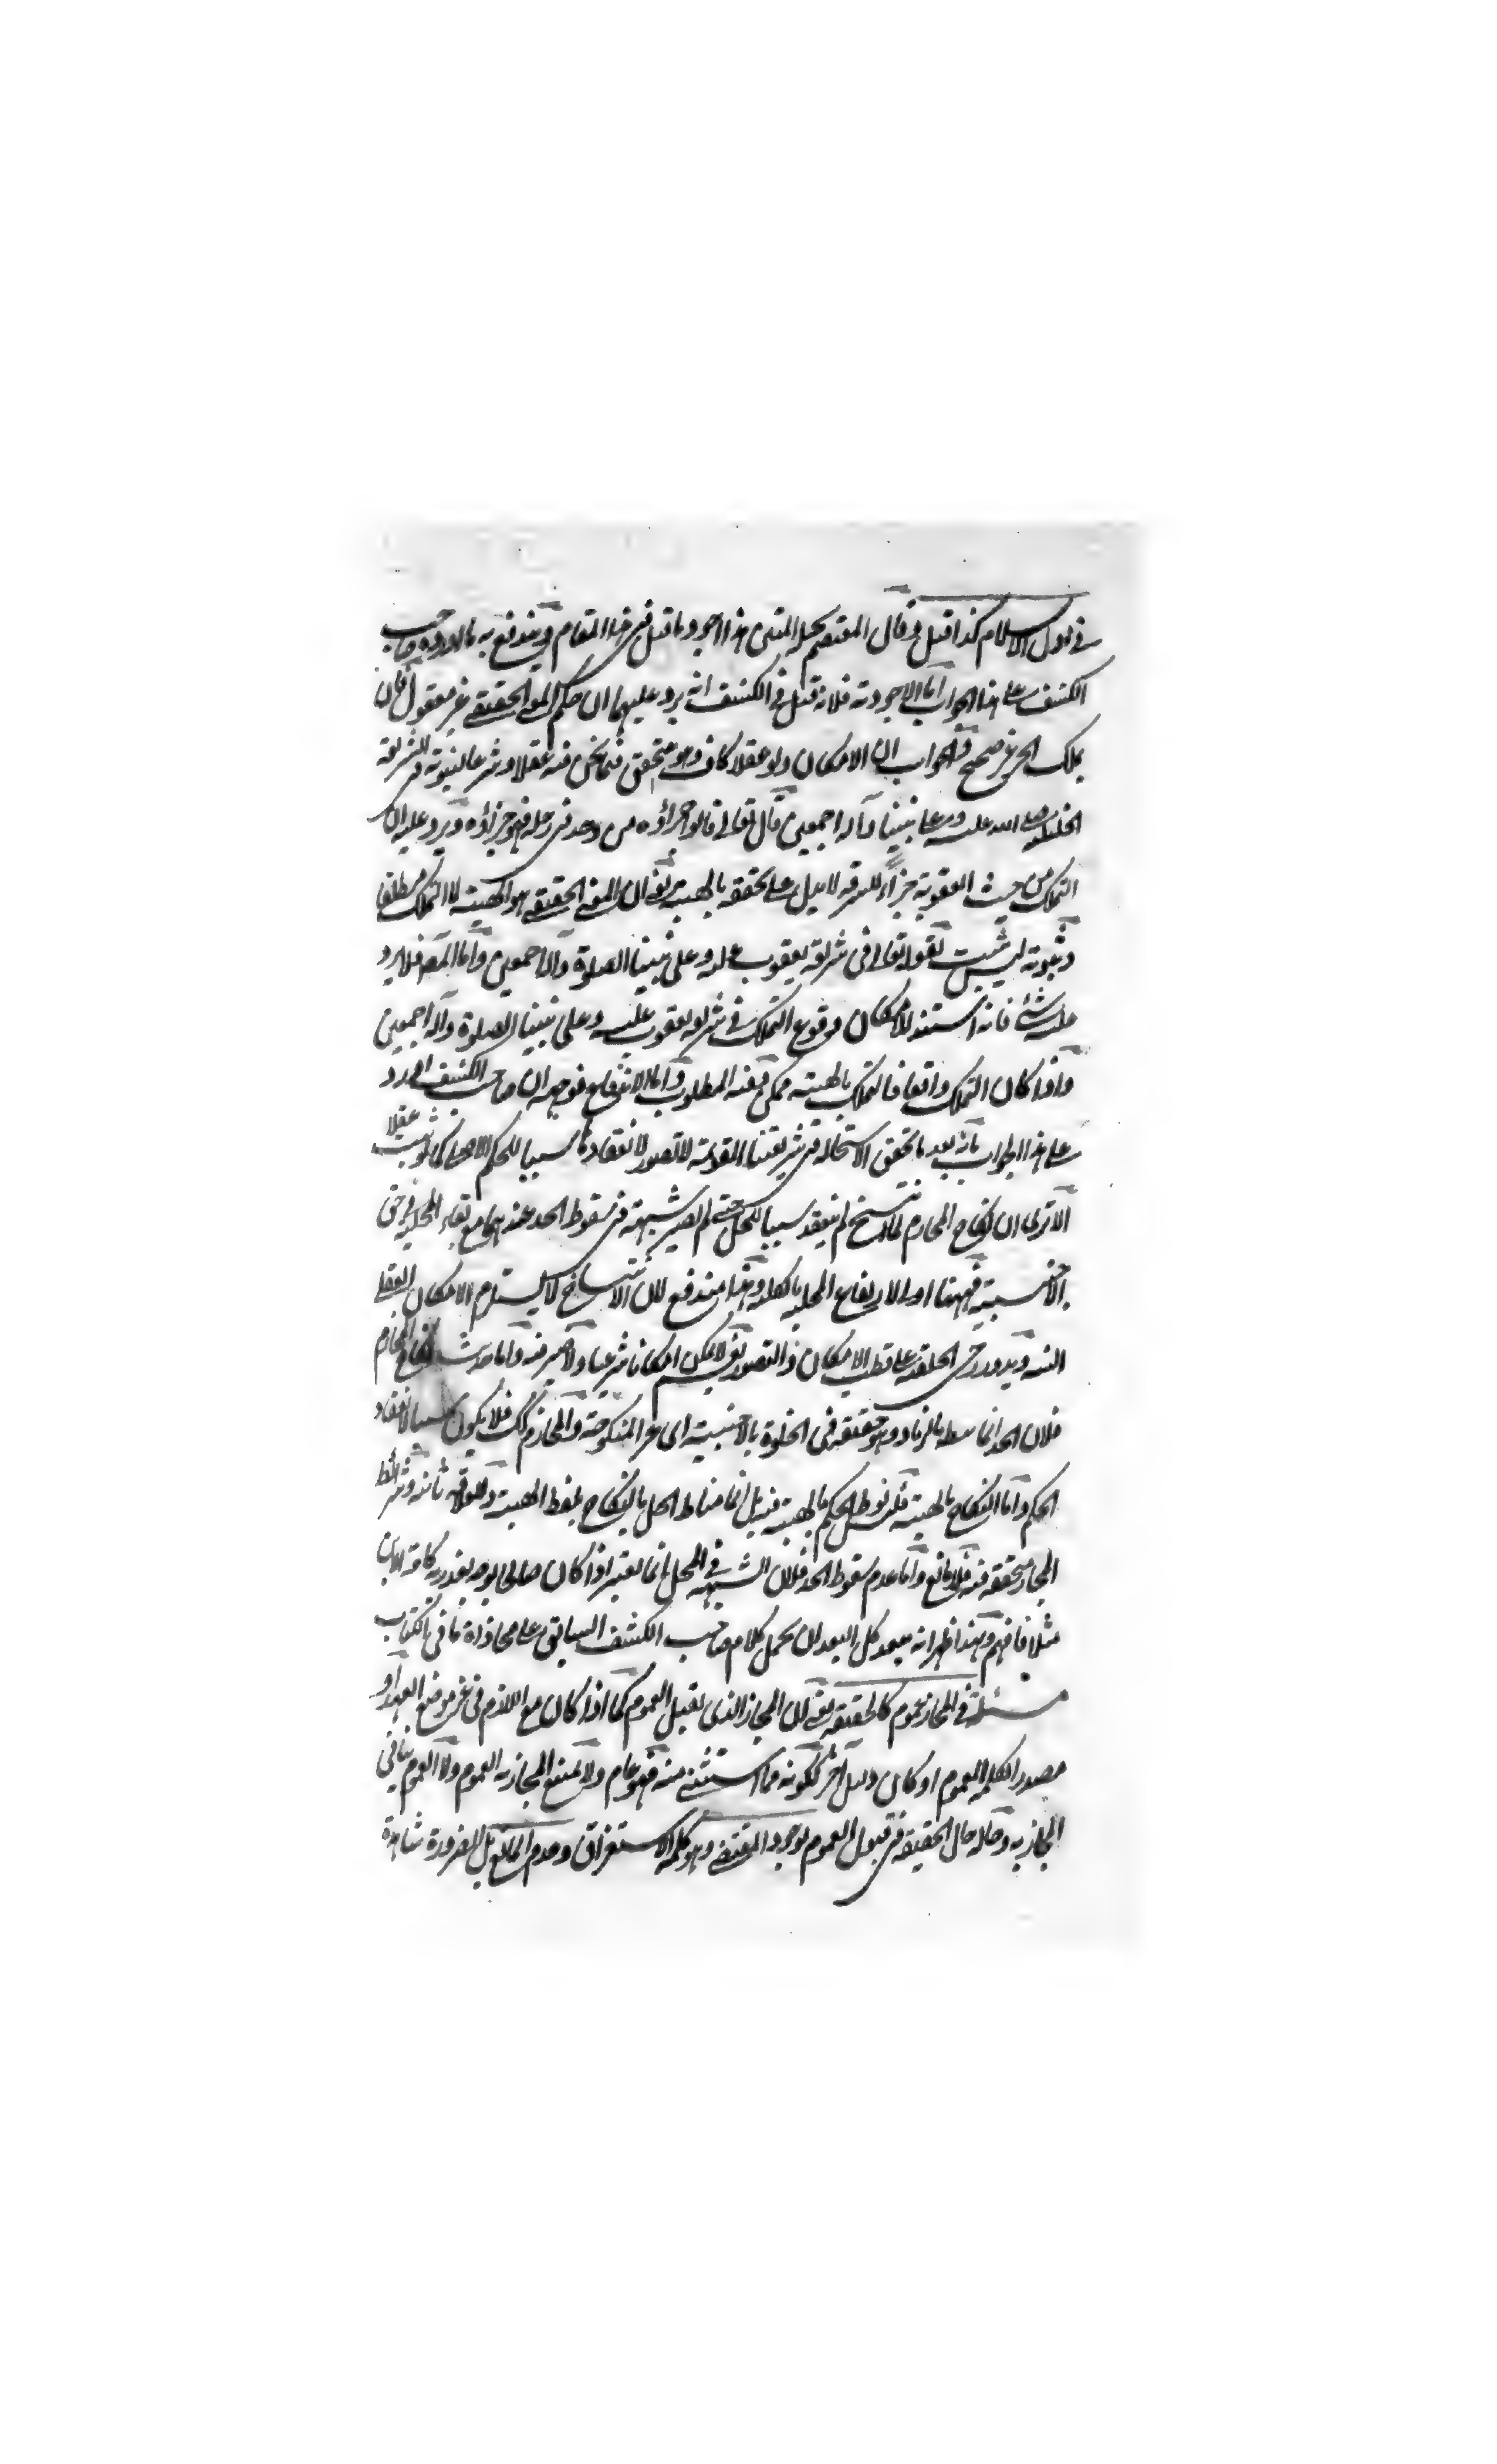 في اول الاسلام كذا قيل و قال المعتصم بحبله المتين هذا اجود ما قيل في هذا المقام ويندفع به ما اورده صاحب
الكشف على هذا الجواب اما الاجودية فلانه قيل في الكشف انه يرد عليهما ان حكم المعنى الحقيقي غير معقول فان
ملك الحر غير صحيح والجواب ان الامكان ولو عقلا كاف وهو متحقق فيما نحن فيه عقلا وشرعا لثبوته في الشريعة
صلى الله عليه وعلى نبينا وآله اجمعين قال تعالى قالوا جزاؤه من وجد في رحله فهو جزاؤه ويرد عليه ان
التملك من حيث العقوبة جزاء للسرقة لا يدل على تحققه بالهبة يعني ان المعنى الحقيقي هو الهبة لا التملك مطلقا
وثبوته ليس يثبت بقوله تعالى في شريعة يعقوب عليه وعلى نبينا الصلوة وآله اجمعين واما المص فلا يرد
عليه شئ فانه استند للامكان بوقوع التملك في شريعة يعقوب عليه وعلى نبينا الصلوة وآله اجمعين
واذا كان التملك واقعا فالتملك بالهبة ممكن وفيه المطلوب واما الاندفاع فوجهه ان صاحب الكشف اورد
على هذا الجواب بانه بعد ما تحقق الاستحالة في شريعتنا المقدسة لا تصور لانعقادها سببا للحكم الاصلي كما لو ثبت عقلا
الا ترى ان نكاح المحارم لما انتسخ لم ينعقد سببا للحل حتى لم يصير شبهة في سقوط الحد عندهما مع بقاء المحلية في حق
الاجنبية فههنا اولى لارتفاع المحلية بالكلية وهذا مندفع لان الانتساخ لا يستلزم الامكان العقلي
البتة ويدور رحى الحلقة على قطب الامكان والتصور نعم لا يمكن امكانا شرعيا ولا ضير فيه واما حديث نكاح المحارم
فلان الحد انما سقط بالزنا وهو حقيقة في الخلوة بالاجنبية اى غير المنكوحة والمحارم كك فلا يكون سببا لانعقاد
الحكم واما النكاح بالهبة فلم نوط الحكم بالهبة فيه بل انما مناط الحل بالنكاح بلفظ الهبة والعلاقة ثابتة وشرائط
المجاز متحققة فيه فلا مانع واما عدم سقوط الحد فلان الشبهة في المحل انما تعتبر اذا كان صالحا بوجه بقدر كامة الابن
مثلا فافهم وبهذا ظهر انه بعيد كل البعد ان يحمل كلام صاحب الكشف السابق على محاذاة ما في الكتاب
مسئلة في المجاز عموم كالحقيقة يعني ان المجاز الذى يقبل العموم كما اذا كان مع اللازم في غير موضع العهد او
مصدرا بكلمة العموم او كان دليل آخر ككونه مما استثنى منه فهو عام ولا يمنع المجازية العموم ولا العموم ينافي
المجازية وحاله حال الحقيقة في قبول العموم لوجود المقتضى وهو كلمة الاستغراق وعدم المانع بل الضرورة شاهدة